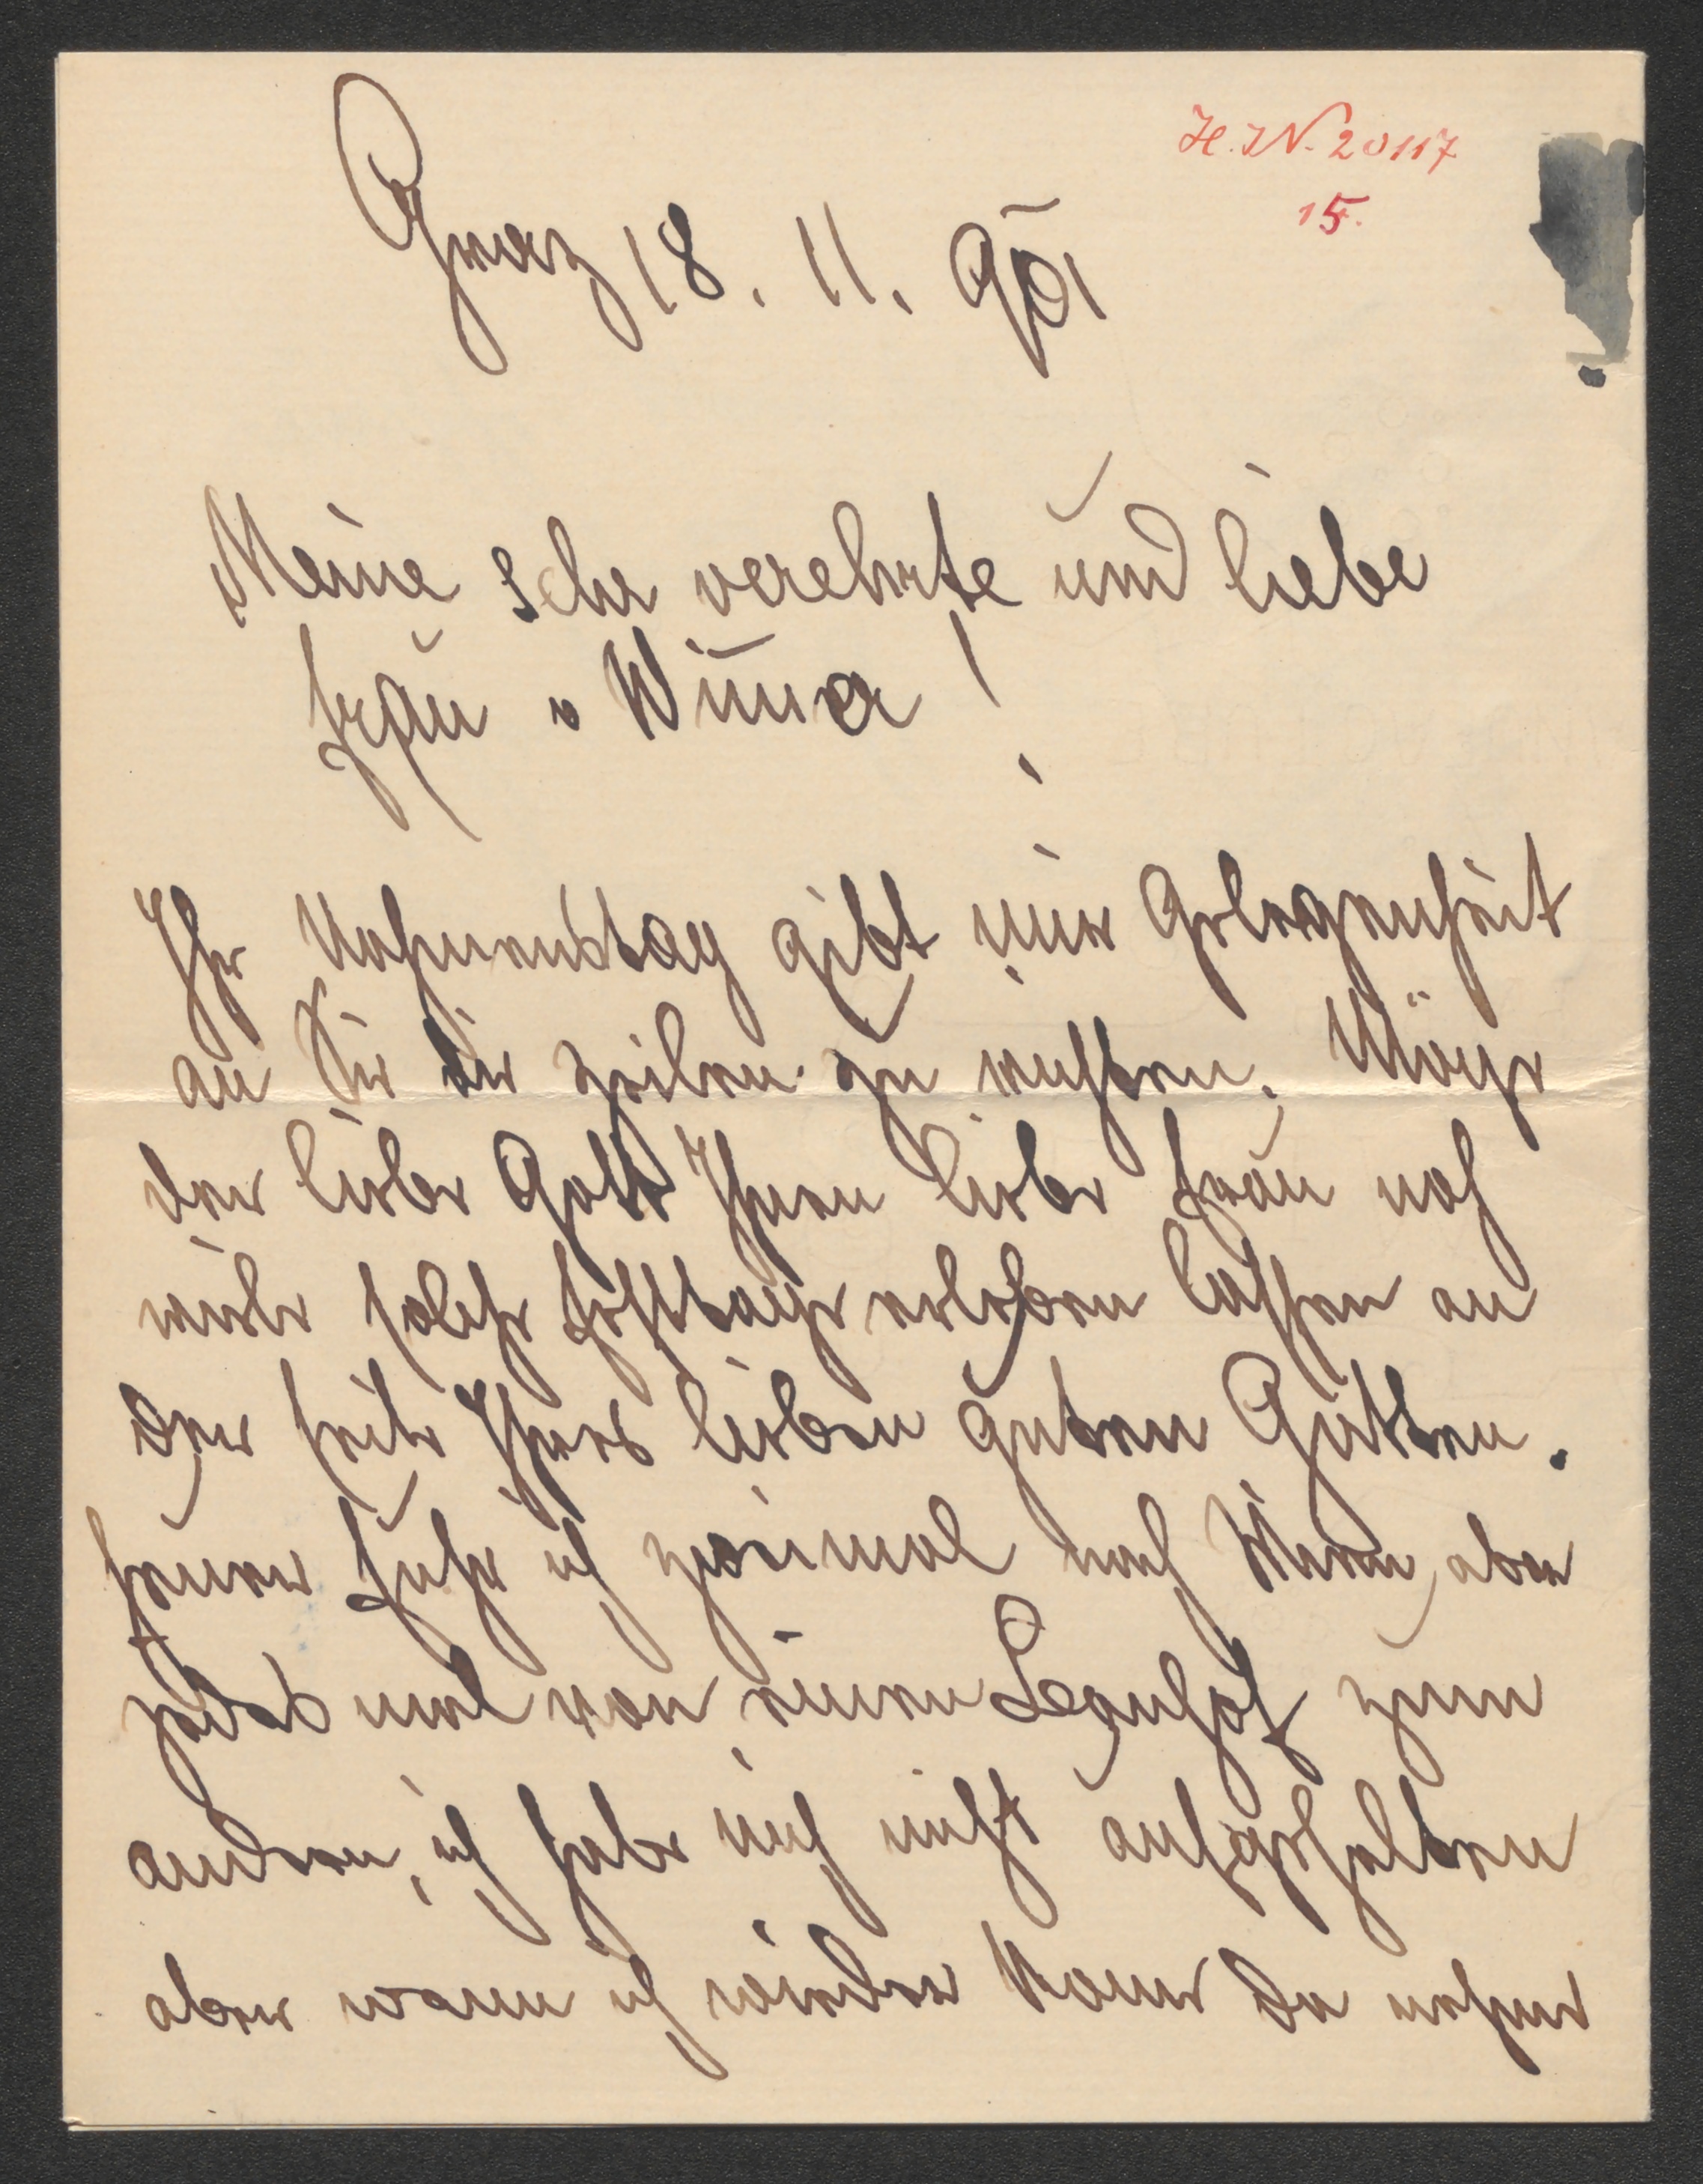 H. I. N. 20117
15.
Graz 18. 11. 901
Meine sehr verehrte und liebe
Frau v
Ihr Nahmenstag gibt mir Gelegenheit
an Sie die Zeilen zu richten. Möge
der liebe Gott Ihnen liebe Frau noch
viele solche Festtage erleben lassen an
der Seite Ihres lieben guten Gatten.
heuer fuhr ich zweimal nach Wien, aber
jedes mal von einem Banhof zum
andern, ich habe mich nicht aufgehalten
aber wenn ich wieder kome da nehme